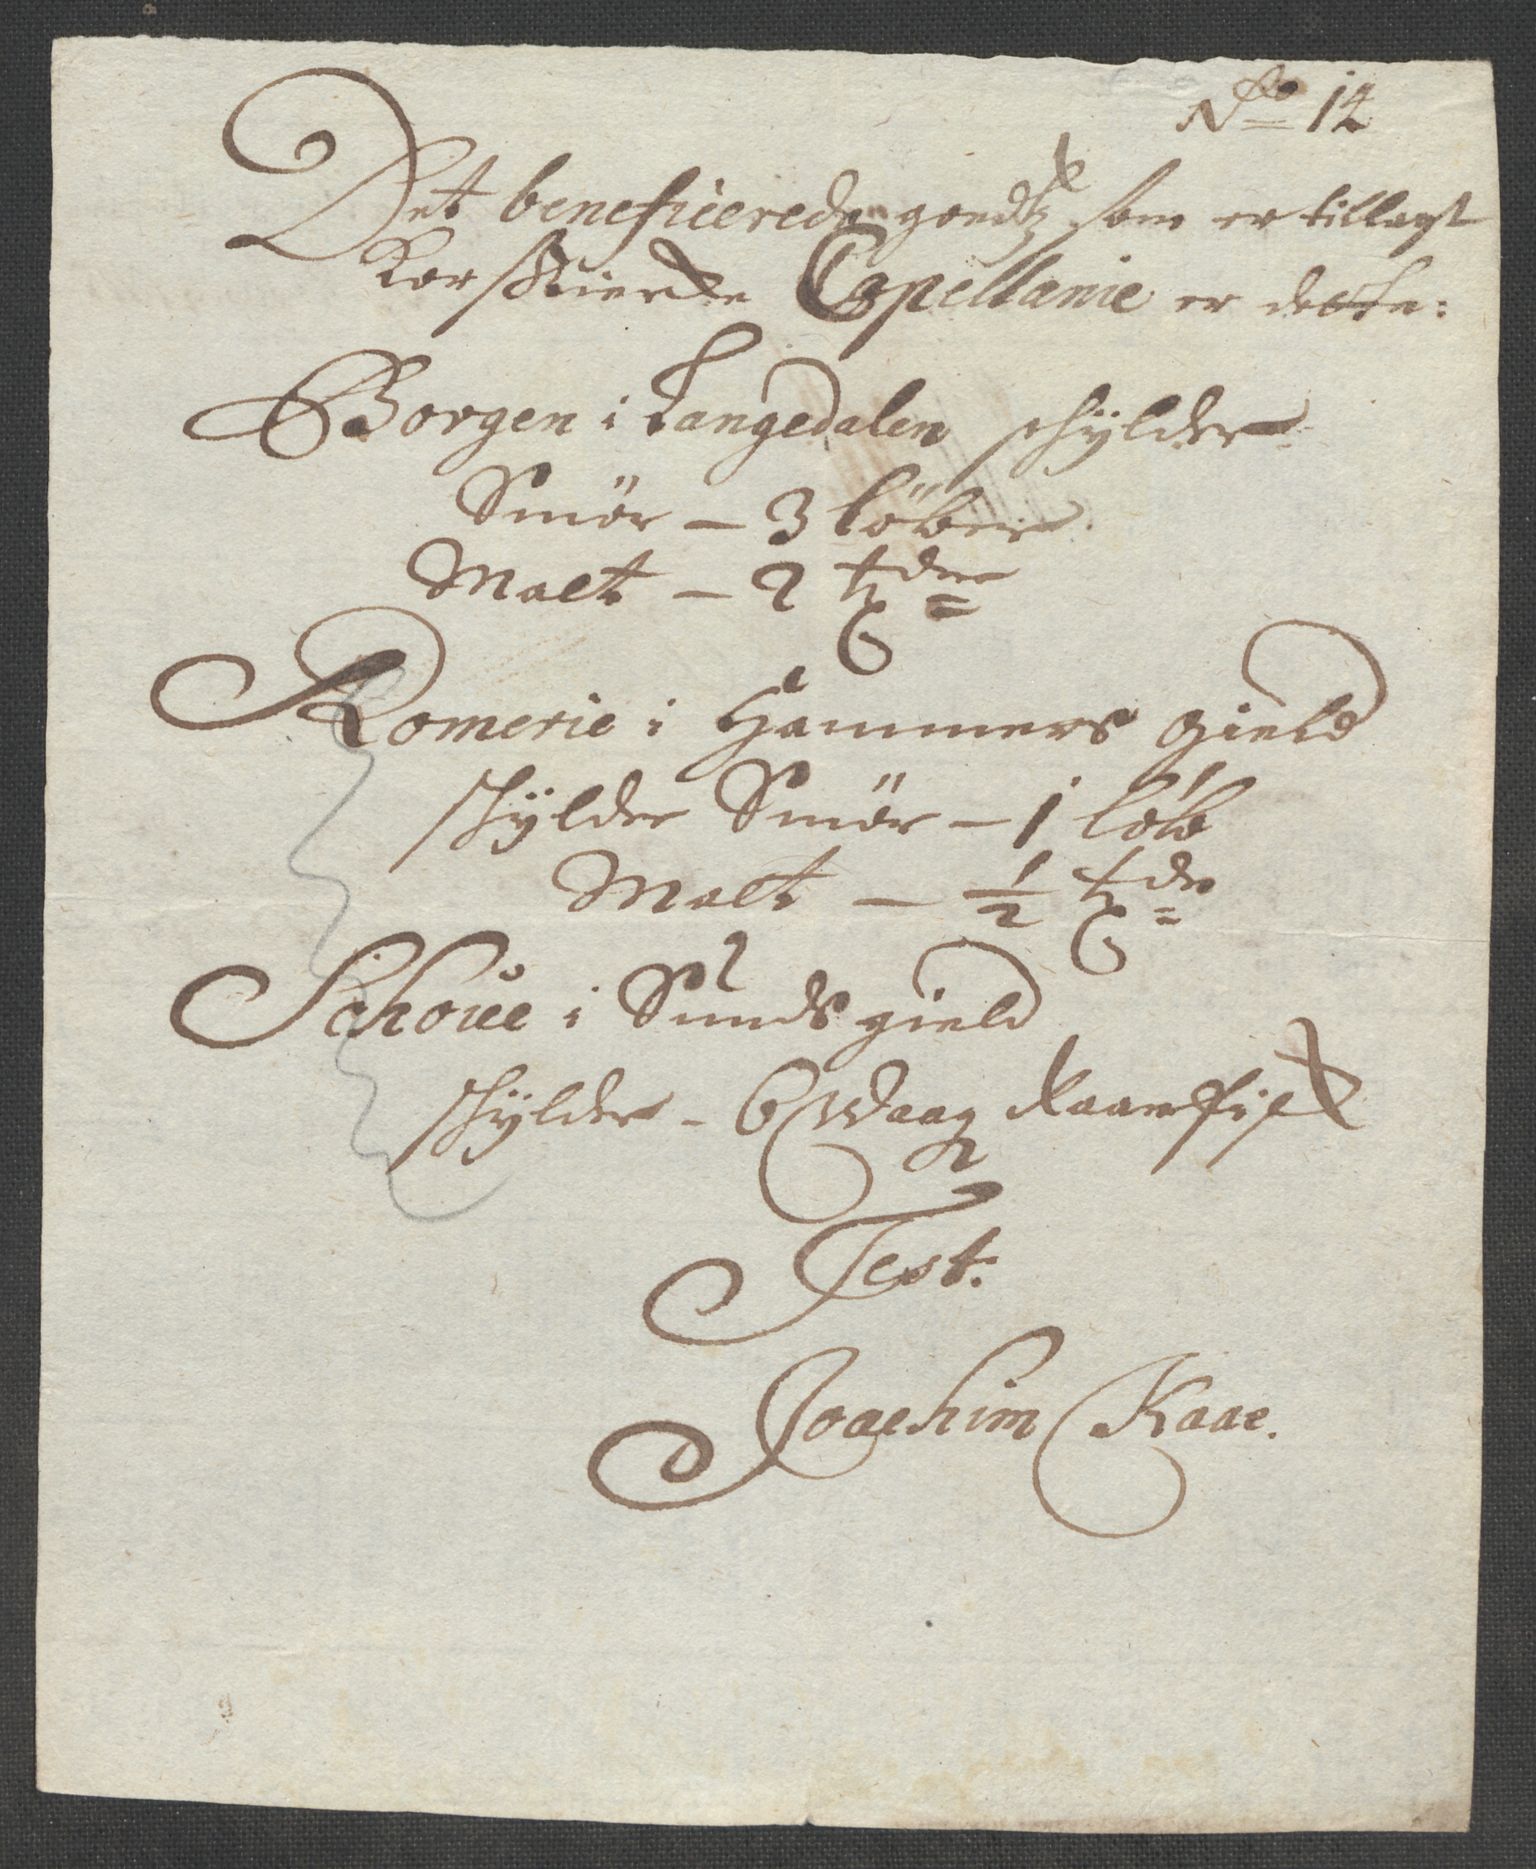 No 12
Det beneficerede goedtz som er tillagt
Kors Kierke Capellanie er dette:
Borgen i Langedalen schÿlder
Smör – 3 löber
Malt – 2 tdr
Romerie i Hammers gield
schÿlder Smör – 1 löb
Malt – ½ tdr
Schoue i Sunds gield
schÿlder – 6 Waag Raaefisk
Test.
Joachim Kaae.